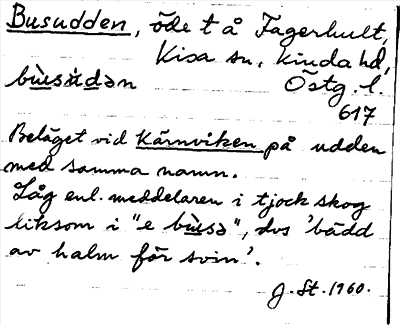 Busudden, öde t å Fagerhult,
Kisa sn, Kinda hd,
bùsùdən Östg. l.
617
Beläget vid Kärnviken på udden
med samma namn.
Låg enl. meddelaren i tjock skog
liksom i "e bùsə", dvs 'bädd
av halm för svin'.
J. St. 1960.